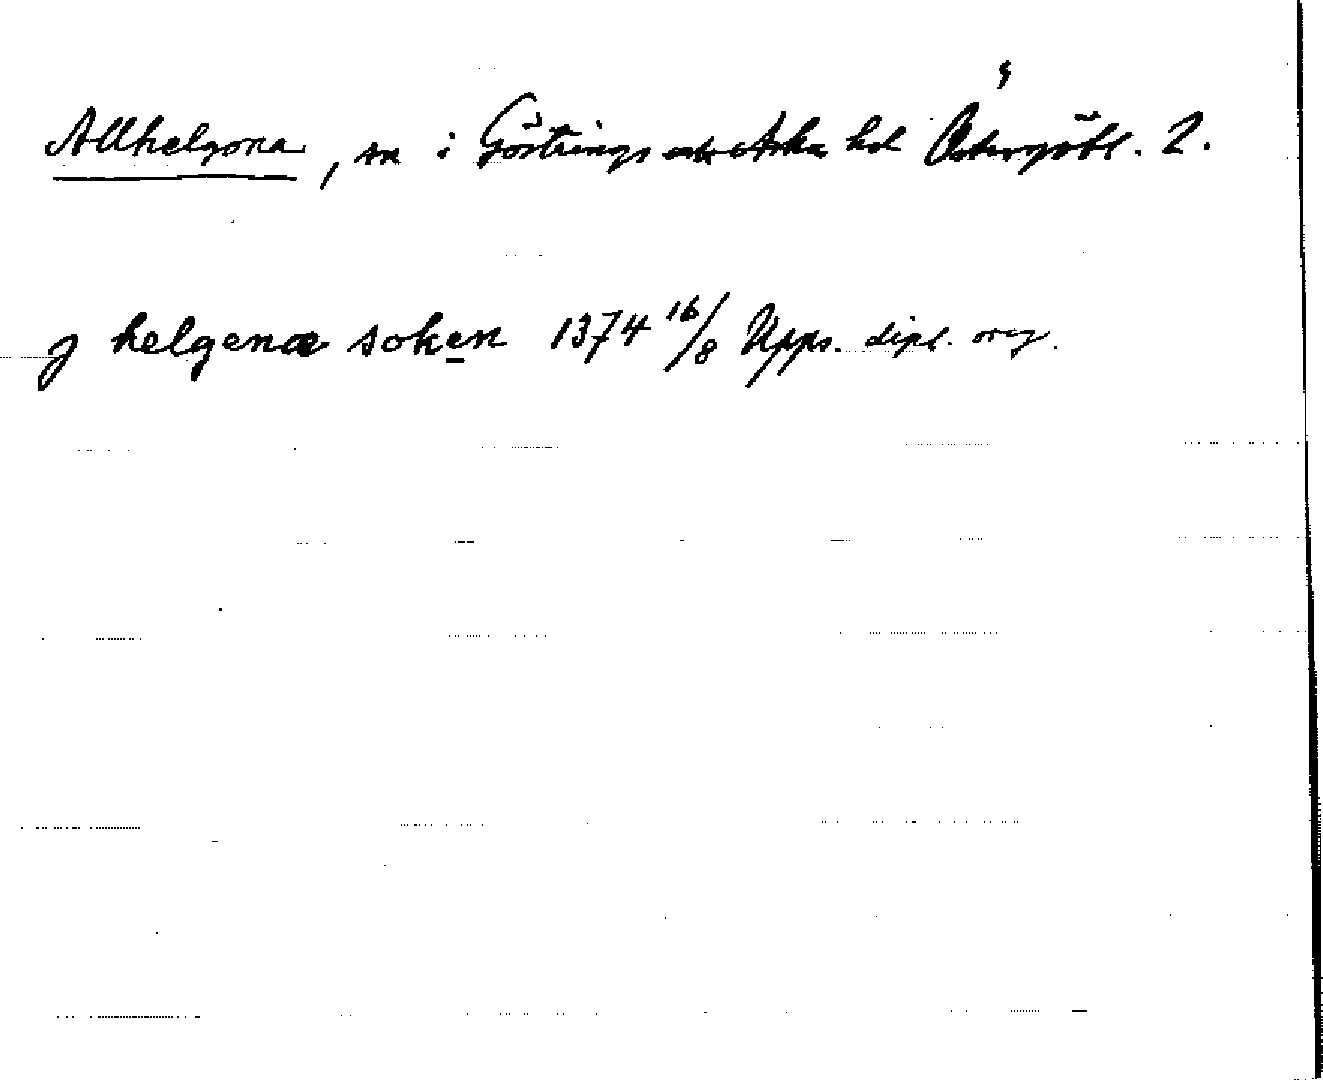 Allhelgona, sn i Göstrings och Aska hd Östergötl. 2.
J helgenæ soken 1374 16/8 Upps. dipl. orig.